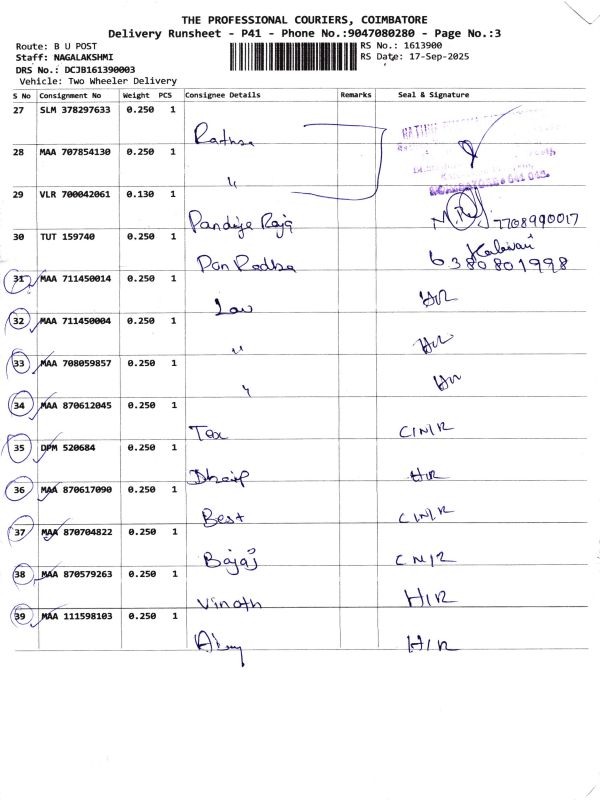 THE PROFESSIONAL COURIERS, COIMBATORE
Delivery Runsheet - P41 - Phone No.:9047080280 - Page No.:3
Route: B U POST RS No.: 1613900
Staff: NAGALAKSHMI RS Date: 17-Sep-2025
DRS No.: DCJB161390003
Vehicle: Two Wheeler Delivery
S No Consignment No Weight PCS Consignee Details Remarks Seal & Signature
27 SLM 378297633 0.250 1
28 MAA 707854130 0.250 1 "
29 VLR 700042061 0.130 1 Pandiye Raja 7708990017
30 TUT 159740 0.250 1 Pon Radha 6380801998
31 MAA 711450014 0.250 1 Law H/R
32 MAA 711450004 0.250 1 " H/R
33 MAA 708059857 0.250 1 " H/R
34 MAA 870612045 0.250 1 Tex C/N/R
35 DPM 520684 0.250 1 H/R
36 MAA 870617090 0.250 1 Best C/N/R
37 MAA 870704822 0.250 1 Bajaj C N/R
38 MAA 870579263 0.250 1 Vinoth H/R
39 MAA 111598103 0.250 1 H/R